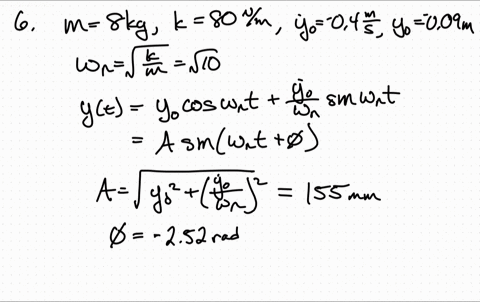 6. m=8kg, k=80 N/m, ẏ₀=-0,4 m/s, y₀=-0,09m
ωₙ=√(k/m)=√10
y(t) = y₀ cos ωₙt + ẏ₀/ωₙ sin ωₙt
= A sin(ωₙt + ∅)
A=√(y₀² + (ẏ₀/ωₙ)²) = 155mm
∅ = -2.52 rad